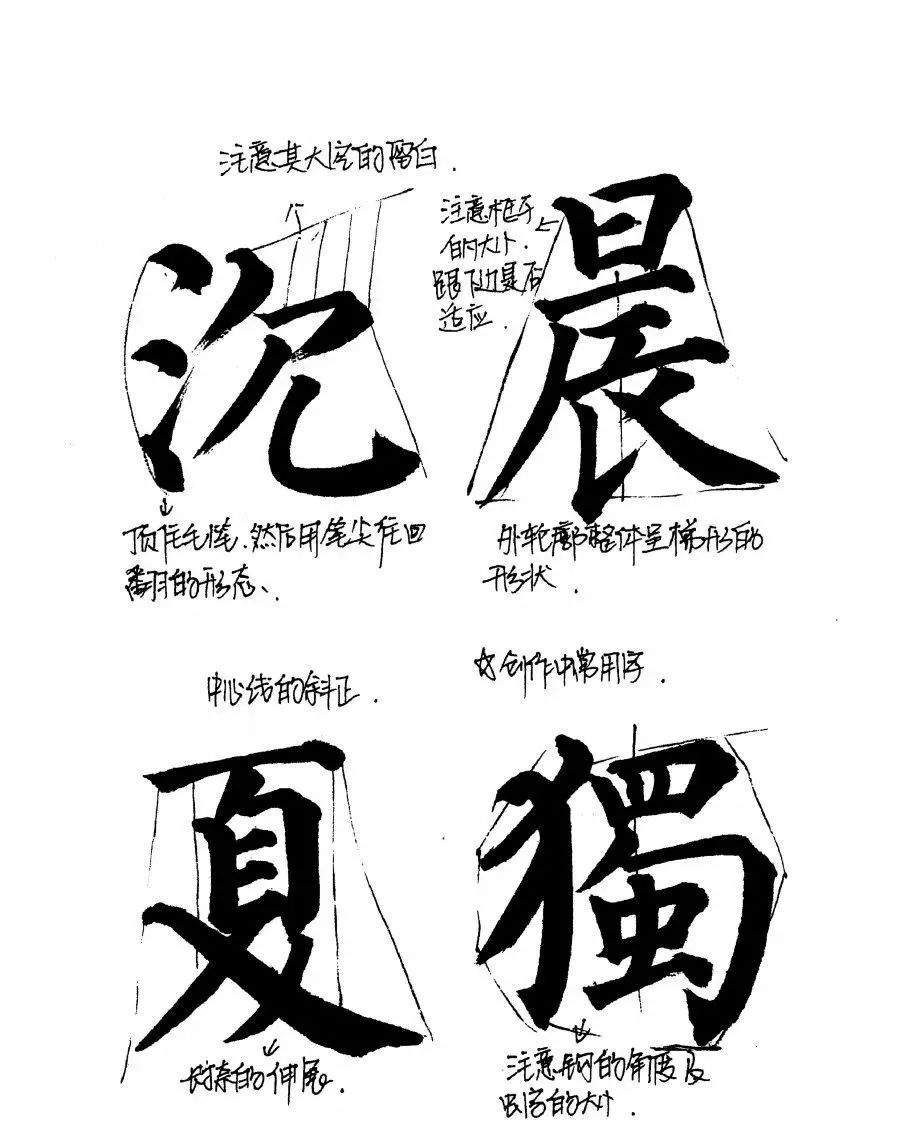 注意其大空的留白.
沉
顶住毛笔.然后用笔尖往回
翻的形态、
注意框子
的大小.
跟下边是否
适应.
晨
外轮廓整体呈梯形的
形状.
中心线的斜正.
夏
捺的伸展.
☆创作中常用字
獨
注意钩的角度及
虫字的大小.